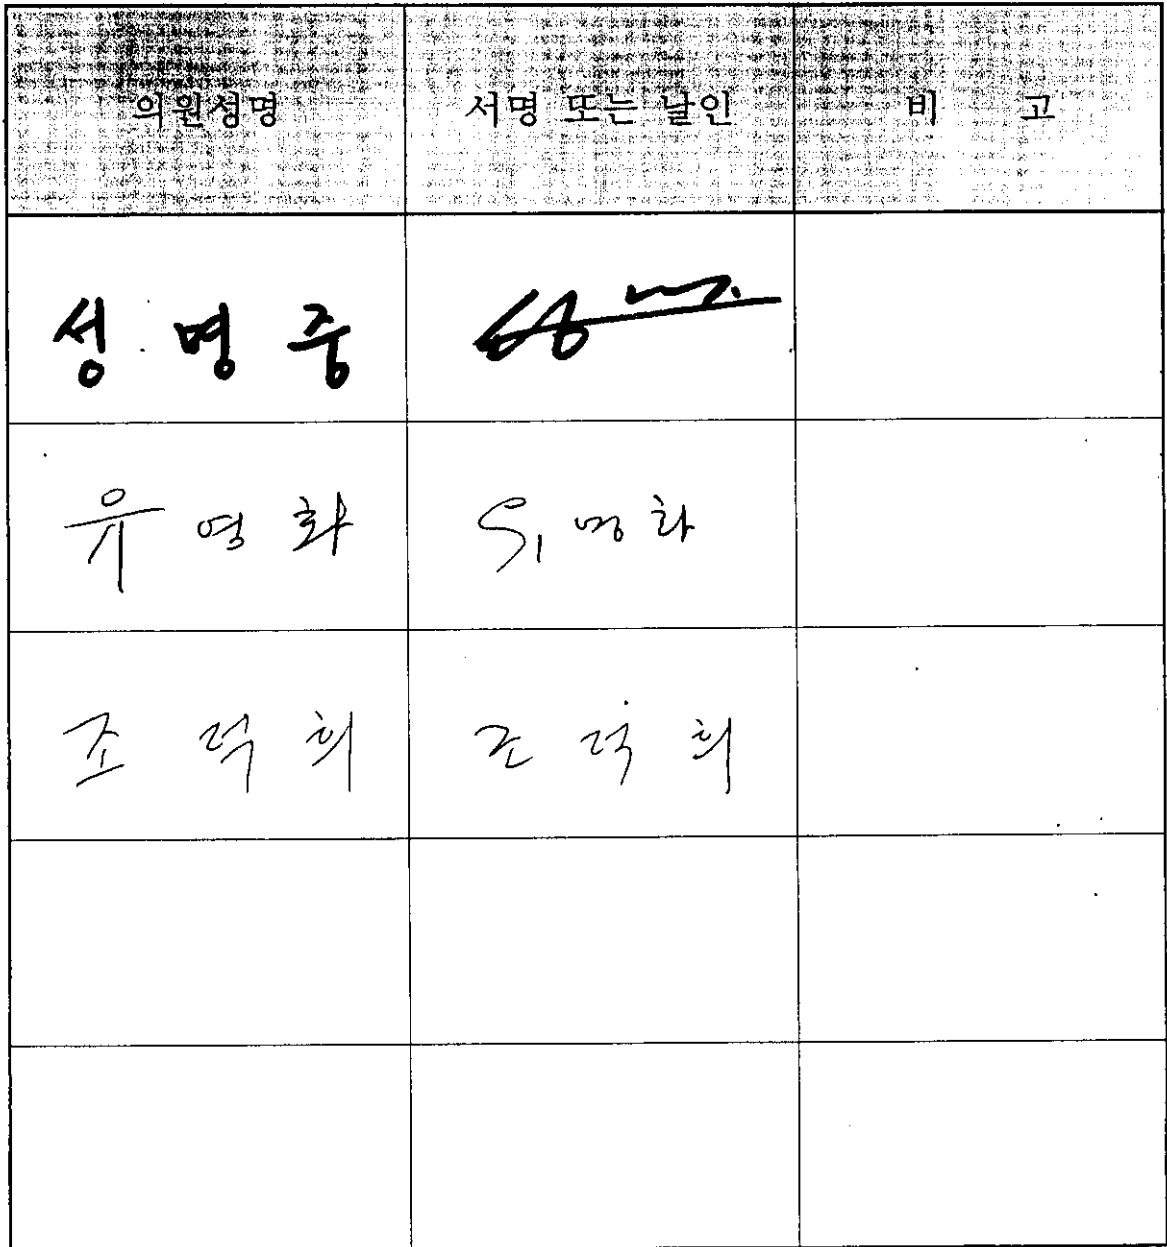 의원성명 서명 또는 날인 비 고
성 명 중
유 영 화 유 영 화
조 덕 희 조 덕 희